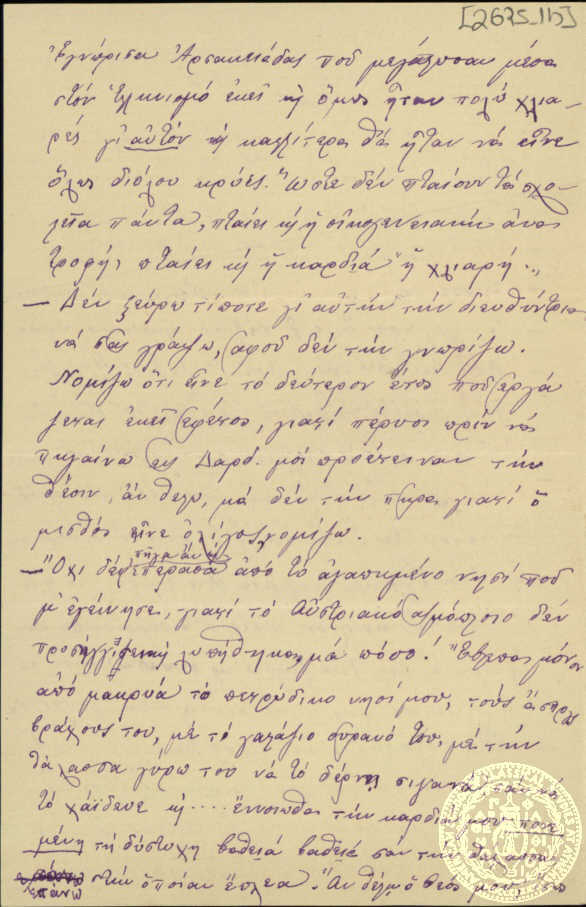 [2675-1b]
Ἐγνώρισα Ἀρσακειάδας ποῦ μεγάλωσαν μέσα
στόν Ἑλληνισμό ἐκεῖ κι ὅμως ἦταν πολύ χλια-
ρές γι' αὐτόν κι καλλίτερα θά ἦταν νά εἶνε
ὅλως διόλου κρύες. Ὥστε δέν πταίουν τά σχο-
λεῖα πάντα, πταίει κι ἡ οἰκογενειακή ἀνα
τροφή, πταίει κι ἡ καρδιά ἡ χλιαρή...
— Δέν ξεύρω τίποτε γι' αὐτήν τήν διευθύντρια
νά σᾶς γράψω, ἀφοῦ δέν τήν γνωρίζω.
Νομίζω ὅτι εἶνε τό δεύτερον ἔτος ποῦ ἐργά
ζεται ἐκεῖ ἐφέτος, γιατί πέρυσι πρίν νά
πηγαίνω εἰς Δαρδ. μοί προσέτειναν τήν
θέσιν, ἄν θέλω, μά δέν τήν πῆρα γιατί ὁ
μισθός εἶνε ὀλίγος νομίζω.
— Ὄχι δέν ἐπέρασα ἀπό τό ἀγαπημένο νησί ποῦ
μ' ἐγέννησε, γιατί τό Αὐστριακό ἀτμόπλοιο δέν
προσήγγιξε κι λυπήθηκα μά πόσο! Ἔβλεπα μόνον
ἀπό μακρυά τό πετρύδικο νησί μου, τούς ἄσπρους
βράχους του, μέ τό γαλάζιο οὐρανό του, μέ τήν
θάλασσα γύρω του νά τό δέρνῃ σιγανά, σάν νά
τό χάϊδευε κι .... ἔννοιωθα τήν καρδιά μου πονε
μένη τή δύστυχη βαθειά βαθειά σάν τήν θάλασσα
ἐπάνω στήν ὁποίαν ἔπλεα. Ἄν θέλῃ ὁ Θεός μου,